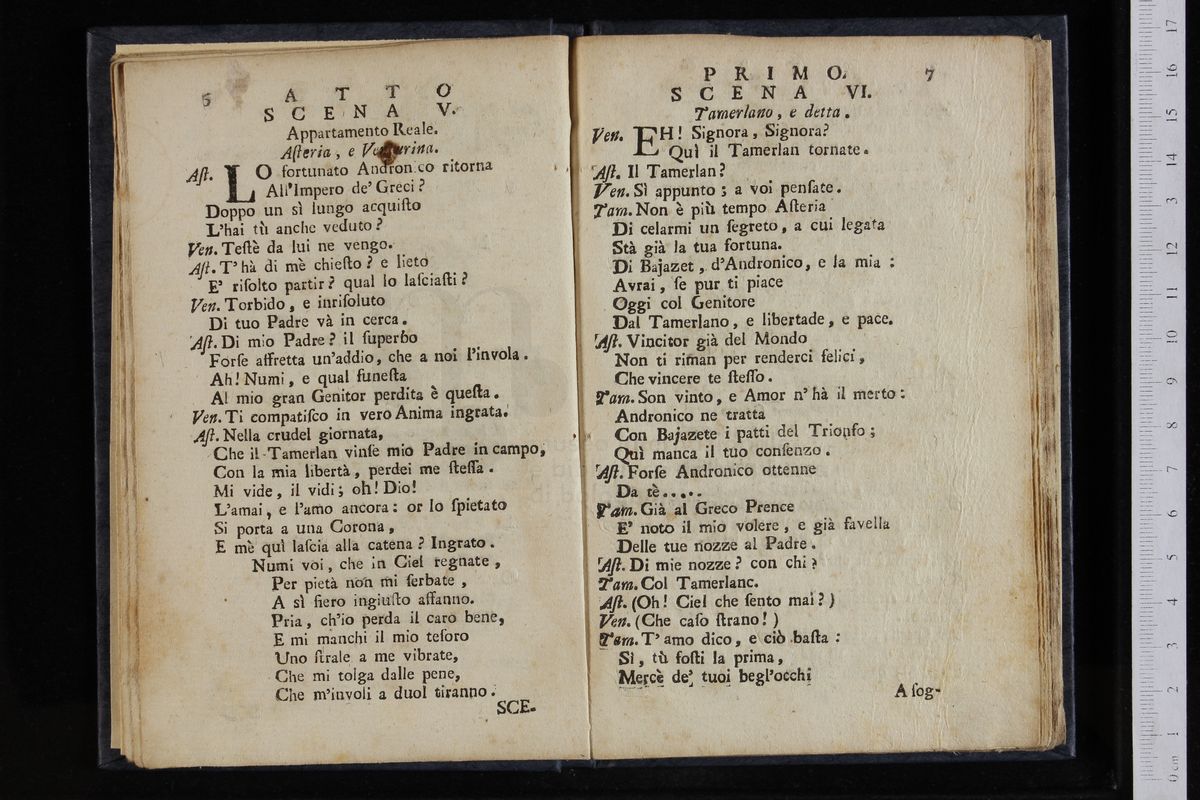 6 A T T O
S C E N A V.
Appartamento Reale.
Aſteria, e Venturina.
Aſt. LO fortunato Andronico ritorna
All'Impero de' Greci?
Doppo un sì lungo acquiſto
L'hai tù anche veduto?
Ven. Teſtè da lui ne vengo.
Aſt. T'hà di mè chieſto? e lieto
E' riſolto partir? qual lo laſciaſti?
Ven. Torbido, e inriſoluto
Di tuo Padre và in cerca.
Aſt. Di mio Padre? il ſuperbo
Forſe affretta un'addio, che a noi l'invola.
Ah! Numi, e qual funeſta
Al mio gran Genitor perdita è queſta.
Ven. Ti compatiſco in vero Anima ingrata.
Aſt. Nella crudel giornata,
Che il Tamerlan vinſe mio Padre in campo,
Con la mia libertà, perdei me ſteſſa.
Mi vide, il vidi; oh! Dio!
L'amai, e l'amo ancora: or lo ſpietato
Si porta a una Corona,
E mè quì laſcia alla catena? Ingrato.
Numi voi, che in Ciel regnate,
Per pietà non mi ſerbate,
A sì fiero ingiuſto affanno.
Pria, ch'io perda il caro bene,
E mi manchi il mio teſoro
Uno ſtrale a me vibrate,
Che mi tolga dalle pene,
Che m'involi a duol tiranno.
SCE-
P R I M O. 7
S C E N A VI.
Tamerlano, e detta.
Ven. EH! Signora, Signora?
Quì il Tamerlan tornate.
Aſt. Il Tamerlan?
Ven. Sì appunto; a voi penſate.
Tam. Non è più tempo Aſteria
Di celarmi un ſegreto, a cui legata
Stà già la tua fortuna.
Di Bajazet, d'Andronico, e la mia:
Avrai, ſe pur ti piace
Oggi col Genitore
Dal Tamerlano, e libertade, e pace.
Aſt. Vincitor già del Mondo
Non ti riman per renderci felici,
Che vincere te ſteſſo.
Tam. Son vinto, e Amor n'hà il merto:
Andronico ne tratta
Con Bajazete i patti del Trionfo;
Quì manca il tuo conſenzo.
Aſt. Forſe Andronico ottenne
Da tè.....
Tam. Già al Greco Prence
E' noto il mio volere, e già favella
Delle tue nozze al Padre.
Aſt. Di mie nozze? con chi?
Tam. Col Tamerlano.
Aſt. (Oh! Ciel che ſento mai?)
Ven. (Che caſo ſtrano!)
Tam. T'amo dico, e ciò baſta:
Sì, tù foſti la prima,
Mercè de' tuoi begl'occhi
A ſog-